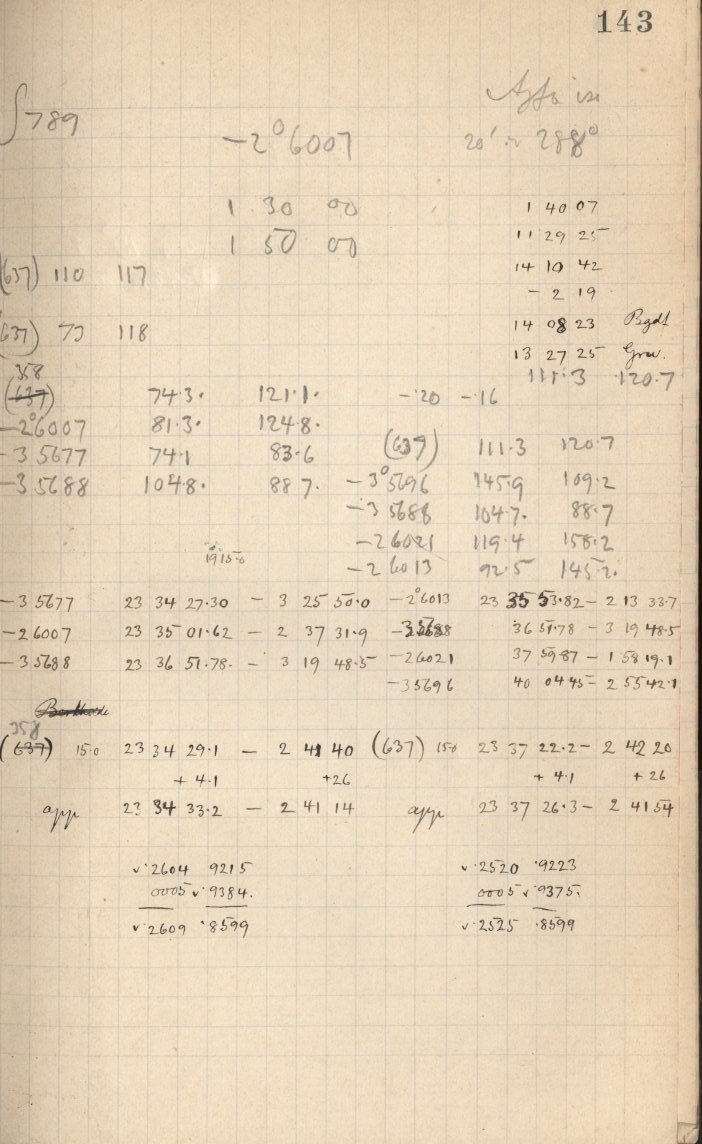 143
∫789
-2°6007 20' 288°
1 30 00 1 40 07
1 50 00 11 29 25
(637) 110 117 14 10 42
- 2 19
(637) 73 118 14 08 23 Bgdt
13 27 25 Grw.
358 111.3 120.7
(637) 74.3. 121.1. -.20 -.16
-2°6007 81.3. 124.8.
-3 5677 74.1 83.6 (637) 111.3 120.7
-3 5688 104.8. 88 7. -3°5696 145.9 109.2
-3 5688 104.7. 88.7
-2 6021 119.4 158.2
1915.0 -2 6013 92.5 145.2.
-3 5677 23 34 27.30 - 3 25 50.0 -2°6013 23 35 53.82 - 2 13 33.7
-2 6007 23 35 01.62 - 2 37 31.9 -3 5688 36 51.78 - 3 19 48.5
-3 5688 23 36 51.78. - 3 19 48.5 -2 6021 37 59 87 - 1 58 19.1
-3 5696 40 04 45 - 2 55 42.1
358
(637) 15.0 23 34 29.1 - 2 41 40 (637) 15.0 23 37 22.2 - 2 42 20
+ 4.1 +26 + 4.1 + 26
app 23 34 33.2 - 2 41 14 app 23 37 26.3 - 2 41 54
v.2604 9215 v.2520 .9223
0005 v.9384. 0005 v.9375.
v.2609 .8599 v.2525 .8599